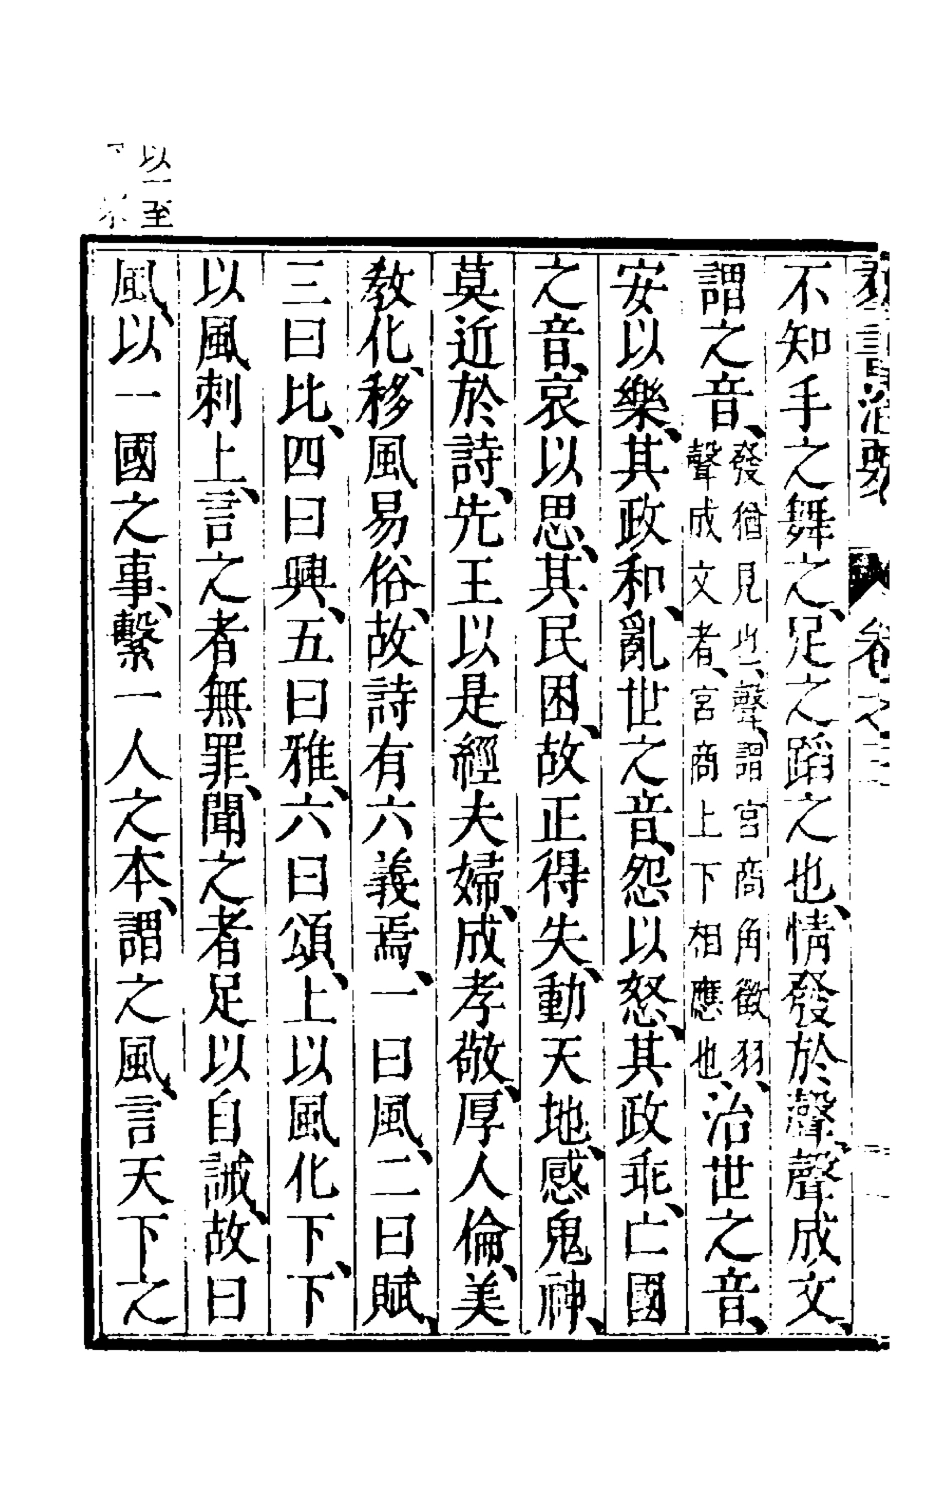 群書治要 卷之三 二
不知手之舞之、足之蹈之也、情發於聲、聲成文、
謂之音、發猶見也、聲、謂宮商角徵羽、聲成文者、宮商上下相應也、治世之音、
安以樂、其政和、亂世之音、怨以怒、其政乖、亡國
之音、哀以思、其民困、故正得失、動天地、感鬼神、
莫近於詩、先王以是經夫婦、成孝敬、厚人倫、美
教化、移風易俗、故詩有六義焉、一曰風、二曰賦、
三曰比、四曰興、五曰雅、六曰頌、上以風化下、下
以風刺上、言之者無罪、聞之者足以自誡、故曰
風、以一國之事、繫一人之本、謂之風、言天下之
以一至